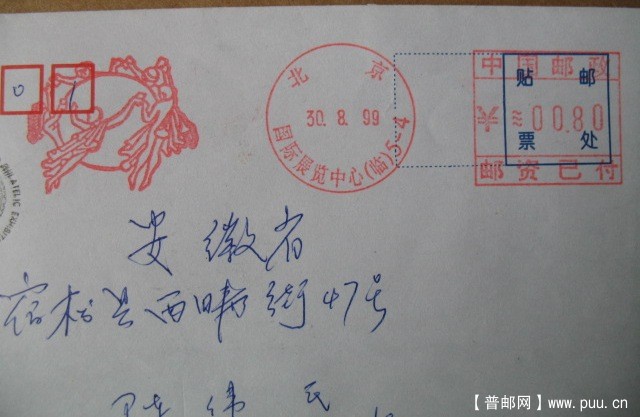 0 1
北京
30.8.99
国际展览中心(临)5-4
中国邮政
贴邮
00.80
票处
邮资已付
安徽省
宿松县西畴街47号
【普邮网】www.puu.cn